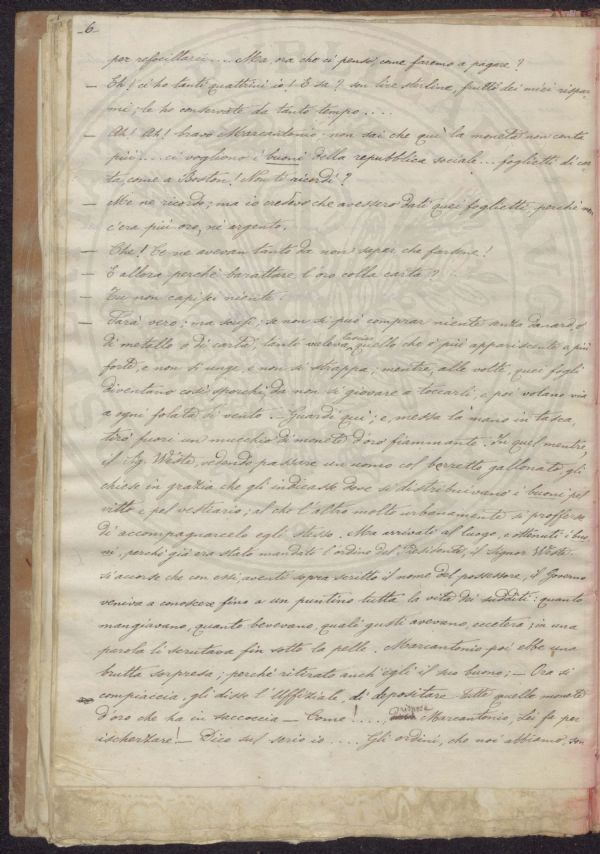 6
per refocillarci.... Ma, ora che ci penso, come faremo a pagare?
— Eh! ci ho tanti quattrini io! E sa? son lire sterline, frutto dei miei rispar-
mi; le ho conservate da tanto tempo....
— Ah! Ah! bravo Marcantonio: non sai che quì la moneta non conta
più.... ci vogliono i buoni della repubblica sociale... foglietti di car-
ta, come a Boston! Non ti ricordi?
— Me ne ricordo; ma io credevo che avessero dati quei foglietti, perchè non
c'era più oro, nè argento.
— Che! Ce ne avevan tanto da non saper che farsene!
— E allora perchè barattare l'oro colla carta?
— Tu non capisci niente.
— Sarà vero; ma scusi; se non si può comprar niente senza danaro, o
di metallo o di carta, tanto valeva lasciar quello che è più appariscente e più
forte, e non si unge, e non si strappa; mentre, alle volte, quei fogli
diventano così sporchi, da non si giovare a toccarli, e, poi volano via
a ogni folata di vento. — Guardi quì; e, messa la mano in tasca,
tirò fuori un mucchio di monete d'oro fiammante. In quel mentre,
il Sig. West, vedendo passare un uomo col berretto gallonato, gli
chiese in grazia che gli indicasse dove si distribuivano i buoni pel
vitto e pel vestiario; al che l'altro molto urbanamente si profferse
di accompagnarcelo egli stesso. Ma arrivati al luogo, e ottenuti i buo-
ni, perchè già era stato mandato l'ordine del Presidente, il signor West
si accorse che con essi, aventi sopra scritto il nome del possessore, il Governo
veniva a conoscere fino a un puntino tutta la vita dei sudditi: quanto
mangiavano, quanto bevevano, quali gusti avevano, eccetera; in una
parola li scrutava fin sotto la pelle. Marcantonio poi ebbe una
brutta sorpresa; perchè ritirato anch'egli il suo buono; — Ora si
compiaccia, gli disse l'Uffiziale, di depositare tutte quelle monete
d'oro che ha in saccoccia — Come!.... rispose Marcantonio, Lei fa per
ischerzare! — Dico sul serio io.... Gli ordini, che noi abbiamo, son